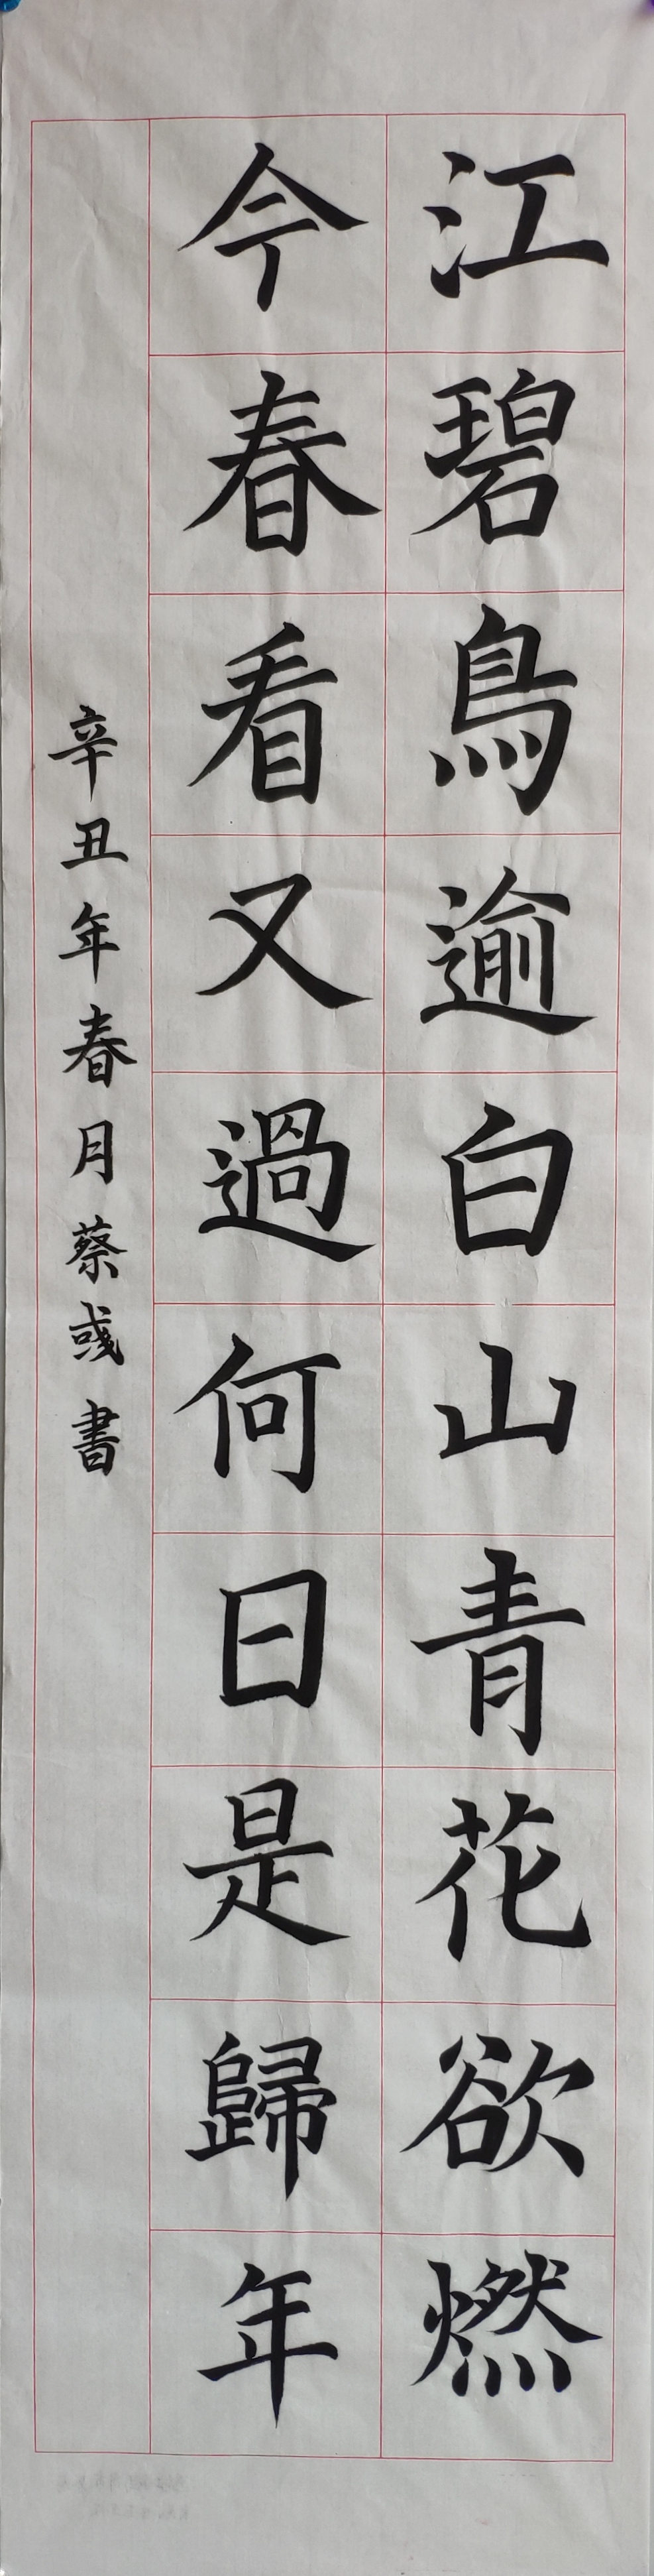 江碧鳥逾白山青花欲燃
今春看又過何日是歸年
辛丑年春月蔡彧書